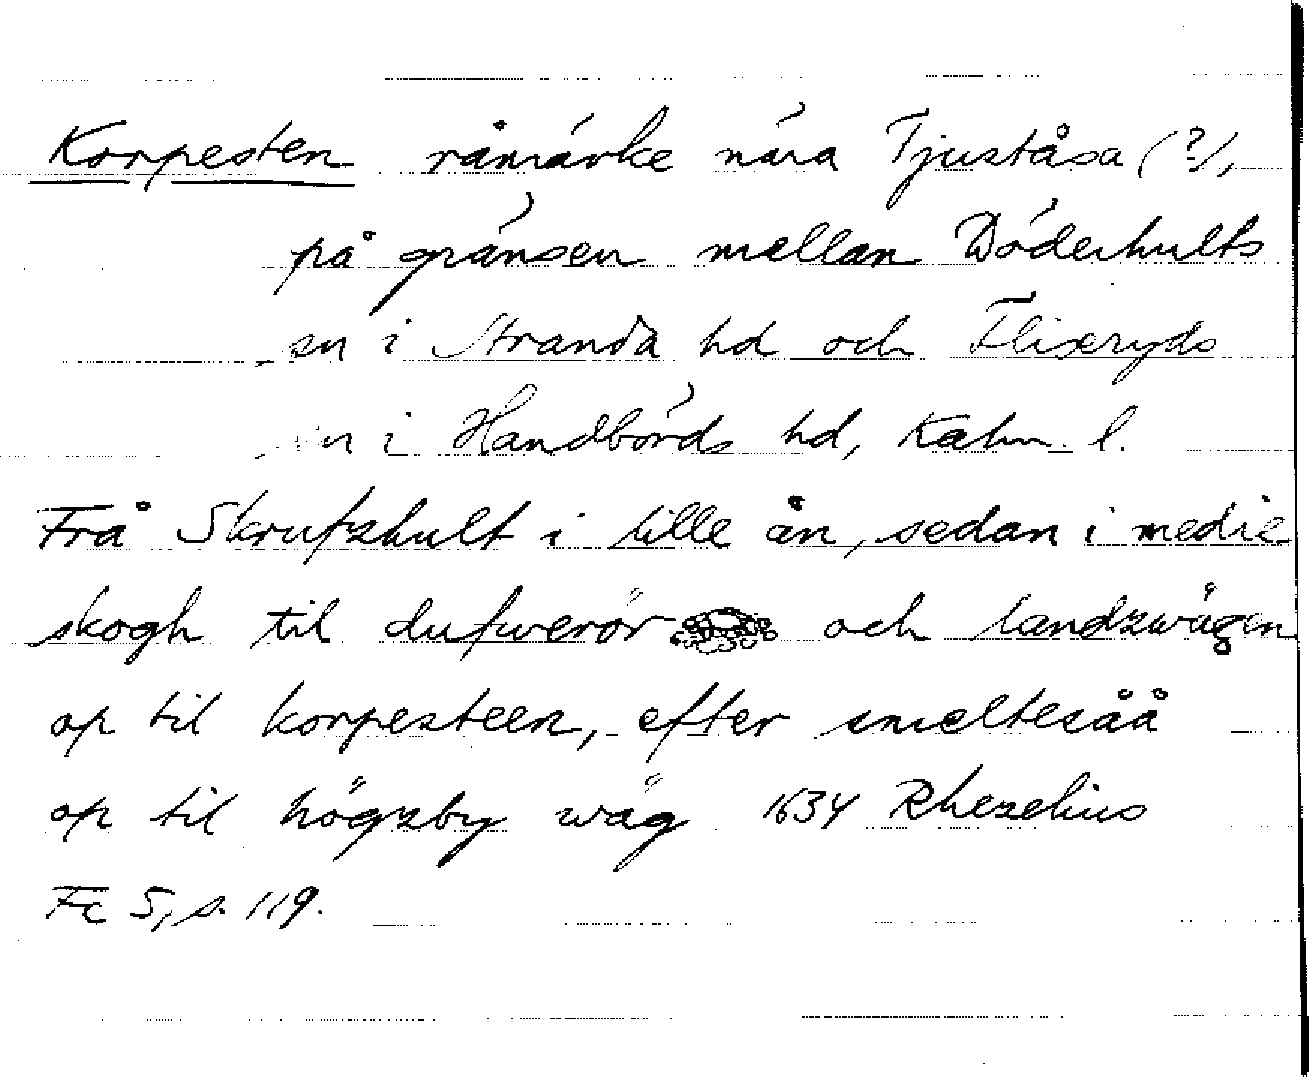 Korpesten råmärke nära Tjuståsa (?),
på gränsen mellan Döderhults
sn i Stranda hd och Fliseryds
sn i Handbörds hd, Kalm. l.
Frå Skrufzhult i lille ån, sedan i medie
skogh til dufwerör och landzwägen
op til korpesteen, efter smeltesåå
op til högzby wäg 1634 Rhezelius
Fc 5, s. 119.